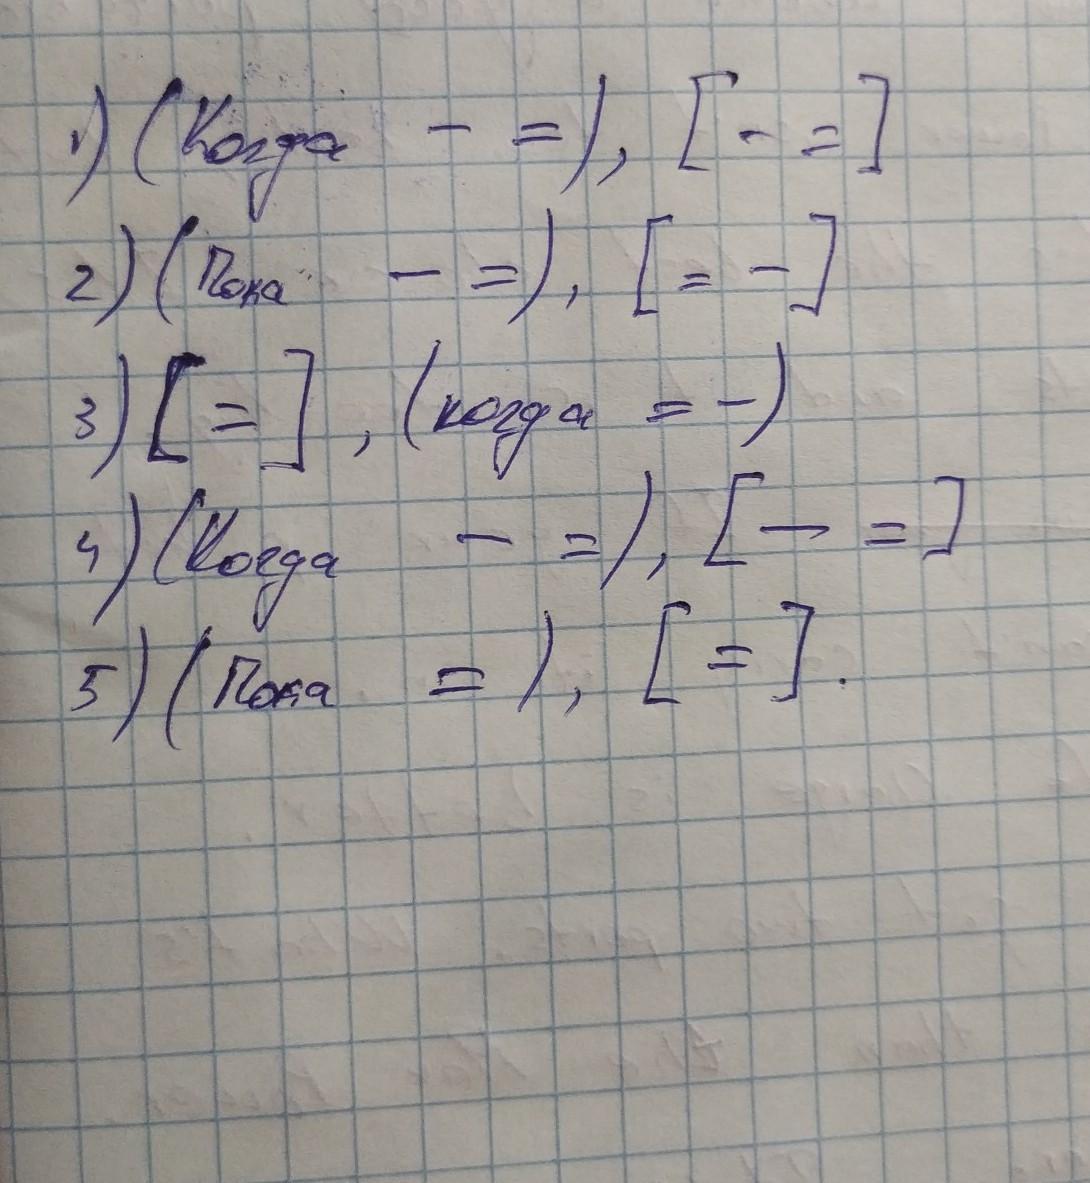 1) (Когда - =), [- =]
2) (Пока - =), [= -]
3) [=], (когда = -)
4) (Когда - =), [— =]
5) (Пока =), [=].